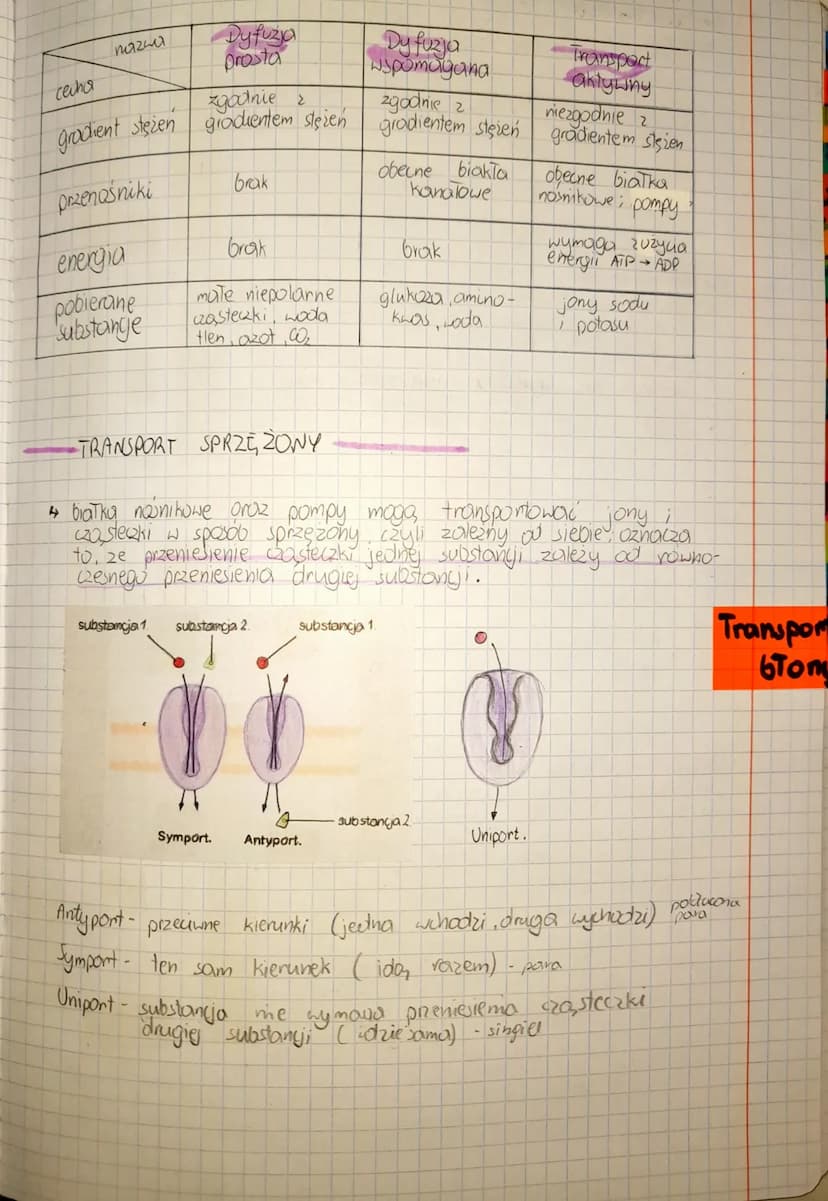 nazwa
cecha
Dyfuzja
prosta
Dyfuzja
wspomagana
Transport
aktywny
gradient stężeń
zgodnie z
gradientem stężeń
zgodnie z
gradientem stężeń
niezgodnie z
gradientem stężen
przenośniki
brak
obecne biakła
kanałowe
obecne białka
nośnikowe i pompy
energia
brak
brak
wymaga zużycia
energii ATP → ADP
pobierane
substancje
małe niepolarne
cząsteczki, woda
tlen, azot, CO₂
glukoza, amino-
kwas, woda
jony sodu
i potasu
TRANSPORT SPRZĘŻONY
↳ białka nośnikowe oraz pompy mogą transportować jony i
cząsteczki w sposób sprzężony, czyli zależny od siebie; oznacza
to, że przeniesienie cząsteczki jednej substancji zależy od równo-
czesnego przeniesienia drugiej substancji.
substancja 1.
substancja 2.
substancja 1.
substancja 2.
Symport.
Antyport.
Uniport.
Transpor
błony
Antyport - przeciwne kierunki (jedna wchodzi, druga wychodzi) pokłócona
para
Symport - ten sam kierunek (idą razem) - para
Uniport - substancja nie wymaga przeniesienia cząsteczki
drugiej substancji (idzie sama) - singiel